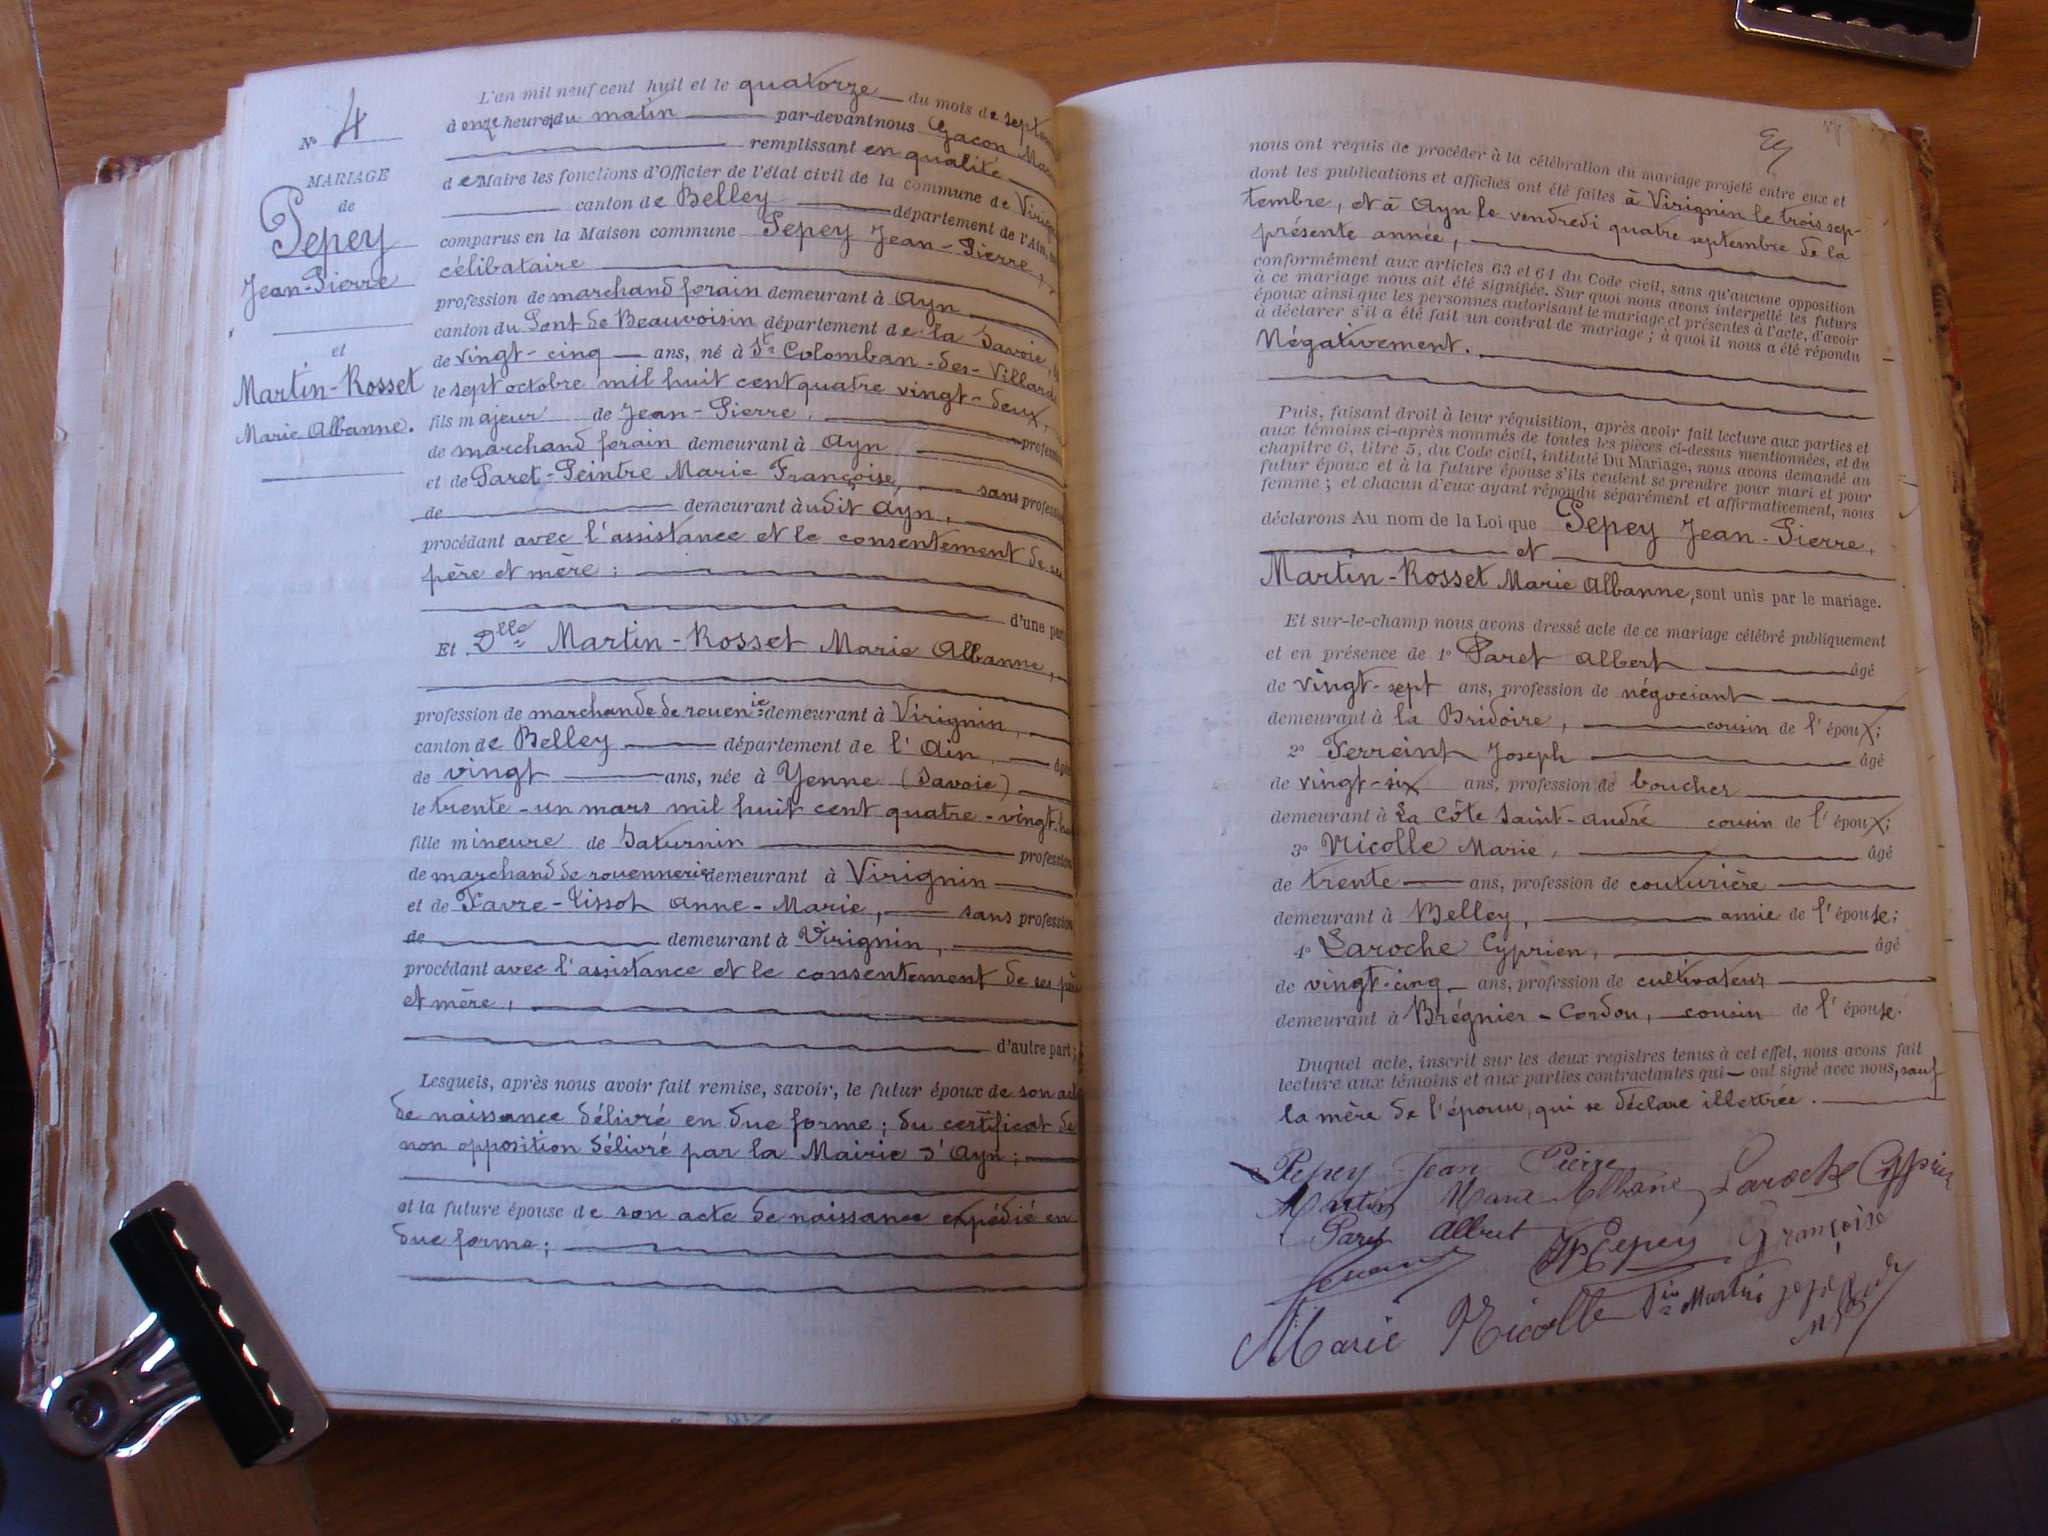 N° 4
MARIAGE
de
Pepey
Jean-Pierre
et
Martin-Rosset
Marie Albanne.
L'an mil neuf cent huit et le quatorze du mois de
à onze heures du matin par-devant nous Gacon
remplissant en qualité
de Maire les fonctions d'Officier de l'état civil de la commune de
canton de Belley département de l'Ain,
comparus en la Maison commune Pepey Jean-Pierre,
célibataire
profession de marchand forain demeurant à Ayn
canton du Pont de Beauvoisin département de la Savoie,
de vingt-cinq ans, né à St Colomban-des-Villards
le sept octobre mil huit cent quatre vingt-deux,
fils majeur de Jean-Pierre, profession
de marchand forain demeurant à Ayn
et de Paret-Peintre Marie Françoise, sans profession
de demeurant à udit Ayn,
procédant avec l'assistance et le consentement de
père et mère ;
d'une part
Et Dlle Martin-Rosset Marie Albanne,
profession de marchande de rouenie demeurant à Virignin,
canton de Belley département de l'Ain, âgée
de vingt ans, née à Yenne (Savoie)
le trente-un mars mil huit cent quatre-vingt
fille mineure de Saturnin profession
de marchand de rouennerie demeurant à Virignin
et de Favre-Tissot Anne-Marie, sans profession
de demeurant à Virignin,
procédant avec l'assistance et le consentement de ses
et mère,
d'autre part ;
Lesquels, après nous avoir fait remise, savoir, le futur époux de son acte
de naissance délivré en due forme ; du certificat de
non opposition délivré par la Mairie d'Ayn ;
et la future épouse de son acte de naissance expédié en
due forme ;
nous ont requis de procéder à la célébration du mariage projeté entre eux et
dont les publications et affiches ont été faites à Virignin le trois sep-
tembre, et à Ayn le vendredi quatre septembre de la
présente année,
conformément aux articles 63 et 64 du Code civil, sans qu'aucune opposition
à ce mariage nous ait été signifiée. Sur quoi nous avons interpellé les futurs
époux ainsi que les personnes autorisant le mariage et présentes à l'acte, d'avoir
à déclarer s'il a été fait un contrat de mariage ; à quoi il nous a été répondu
Négativement.
Puis, faisant droit à leur réquisition, après avoir fait lecture aux parties et
aux témoins ci-après nommés de toutes les pièces ci-dessus mentionnées, et du
chapitre 6, titre 5, du Code civil, intitulé Du Mariage, nous avons demandé au
futur époux et à la future épouse s'ils veulent se prendre pour mari et pour
femme ; et chacun d'eux ayant répondu séparément et affirmativement, nous
déclarons Au nom de la Loi que Pepey Jean-Pierre,
et
Martin-Rosset Marie Albanne, sont unis par le mariage.
Et sur-le-champ nous avons dressé acte de ce mariage célébré publiquement
et en présence de 1° Paret Albert âgé
de vingt-sept ans, profession de négociant
demeurant à la Bridoire, cousin de l'époux ;
2° Ferreint Joseph âgé
de vingt-six ans, profession de boucher
demeurant à La Côte Saint-André cousin de l'époux ;
3° Nicolle Marie, âgé
de trente ans, profession de couturière
demeurant à Belley, amie de l'épouse ;
4° Laroche Cyprien, âgé
de vingt-cinq ans, profession de cultivateur
demeurant à Brégnier-Cordon, cousin de l'épouse.
Duquel acte, inscrit sur les deux registres tenus à cet effet, nous avons fait
lecture aux témoins et aux parties contractantes qui ont signé avec nous, sauf
la mère de l'époux, qui se déclare illettrée.
Pepey Jean Pierre
Martin Marie Albane Laroche Cyprien
Paret Albert JPPepey Françoise
Marie Nicolle Martin